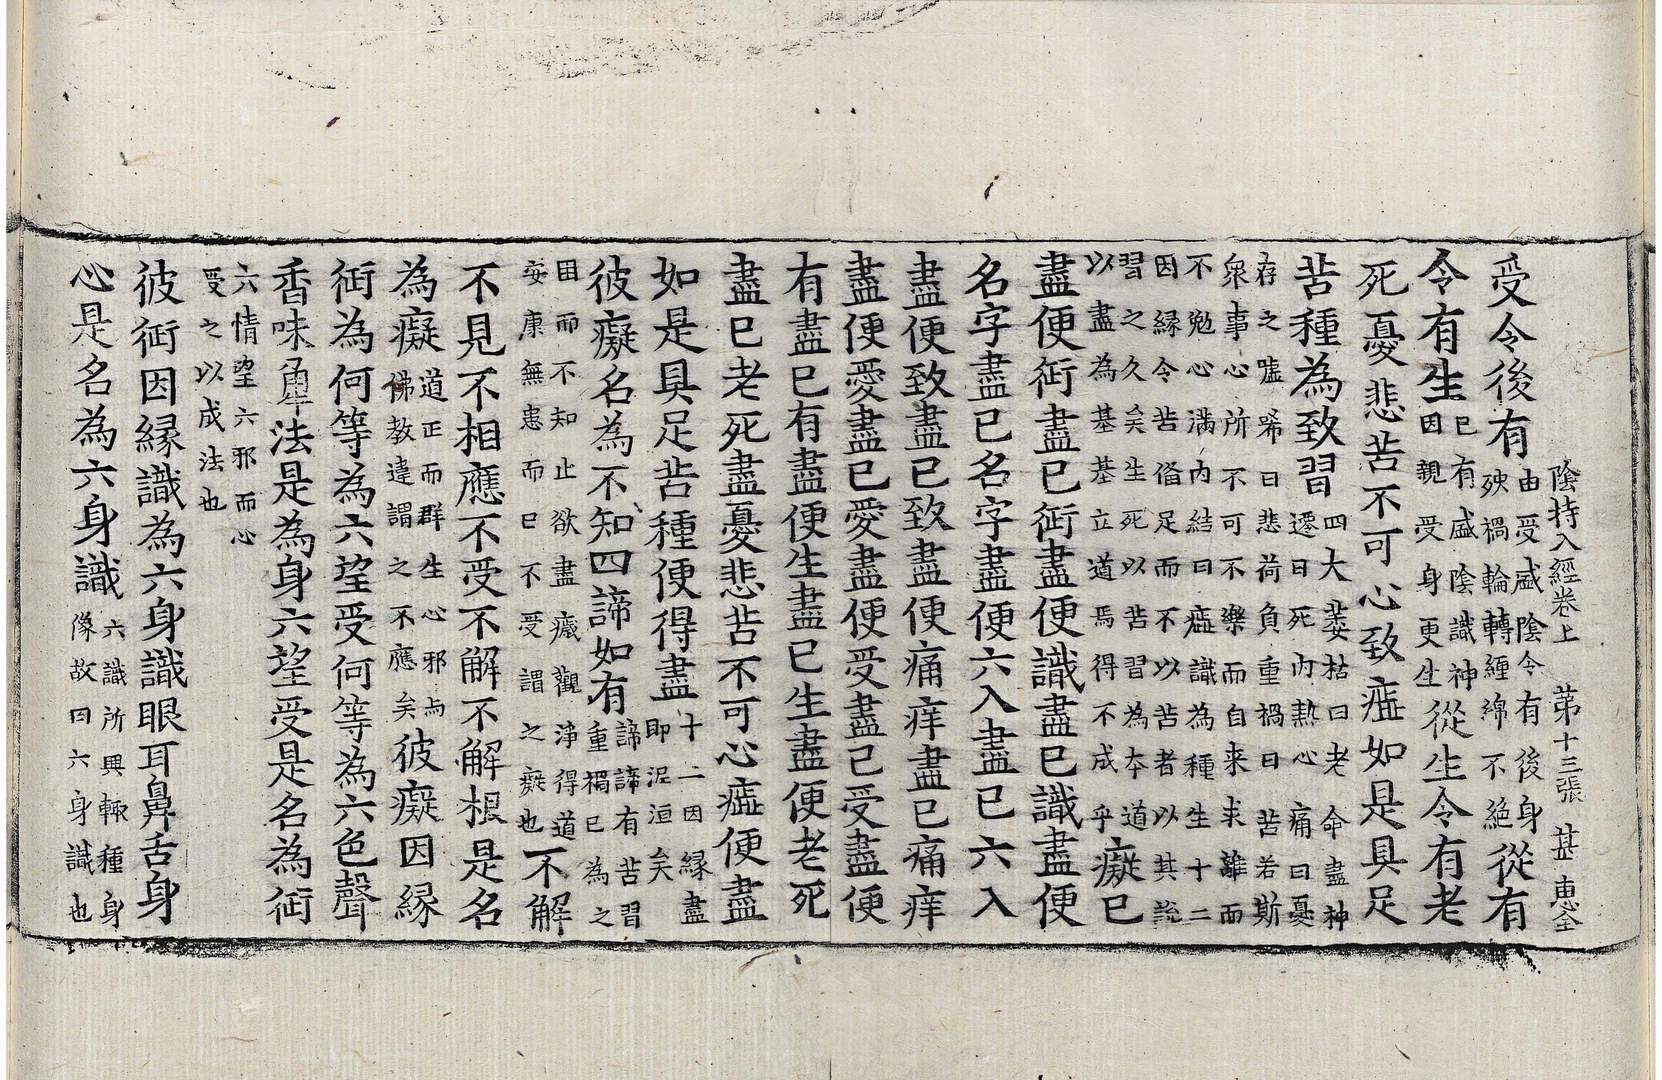 陰持入經卷上 第十三張 甚 惠全
受令後有由受盛陰令有後身殃禍輪轉纏綿不絕從有
令有生已有盛陰識神因親受身更生從生令有老
死憂悲苦不可心致惱如是具足
苦種為致習四大萎枯曰老命盡神遷曰死內熱心痛曰憂
存之噓唏曰悲荷負重禍曰苦若斯衆事心所不可不樂而自来求離而
不勉心滿内結曰惱識為種生十二因縁令苦偹足而不以苦者以其訛
習之久矣生死以苦習為本道以盡為基基立道焉得不成乎癡已
盡便行盡已行盡便識盡已識盡便
名字盡已名字盡便六入盡已六入
盡便致盡已致盡便痛痒盡已痛痒
盡便愛盡已愛盡便受盡已受盡便
有盡已有盡便生盡已生盡便老死
盡已老死盡憂悲苦不可心惱便盡
如是具足苦種便得盡十二因縁盡即泥洹矣
彼癡名為不知四諦如有諦諦有苦習重禍已為之
困而不知止欲盡癥觀淨得道安康無患而已不受謂之癡也不解
不見不相應不受不解不解根是名
為癡道正而群生心邪与佛教違謂之不應矣彼癡因縁
行為何等為六望受何等為六色聲
香味更法是為身六望受是名為行
六情望六邪而心受之以成法也
彼行因縁識為六身識眼耳鼻舌身
心是名為六身識六識所興輙種身像故曰六身識也